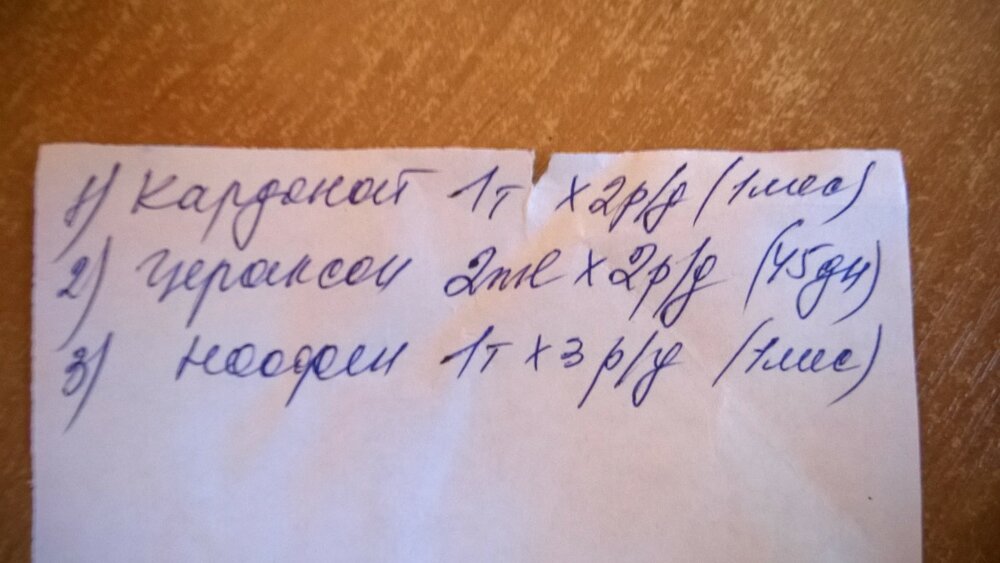 1) Кардонат 1т х 2р/д (1мес)
2) Цераксон 2мл х 2р/д (45дн)
3) Ноофен 1т х 3 р/д (1мес)